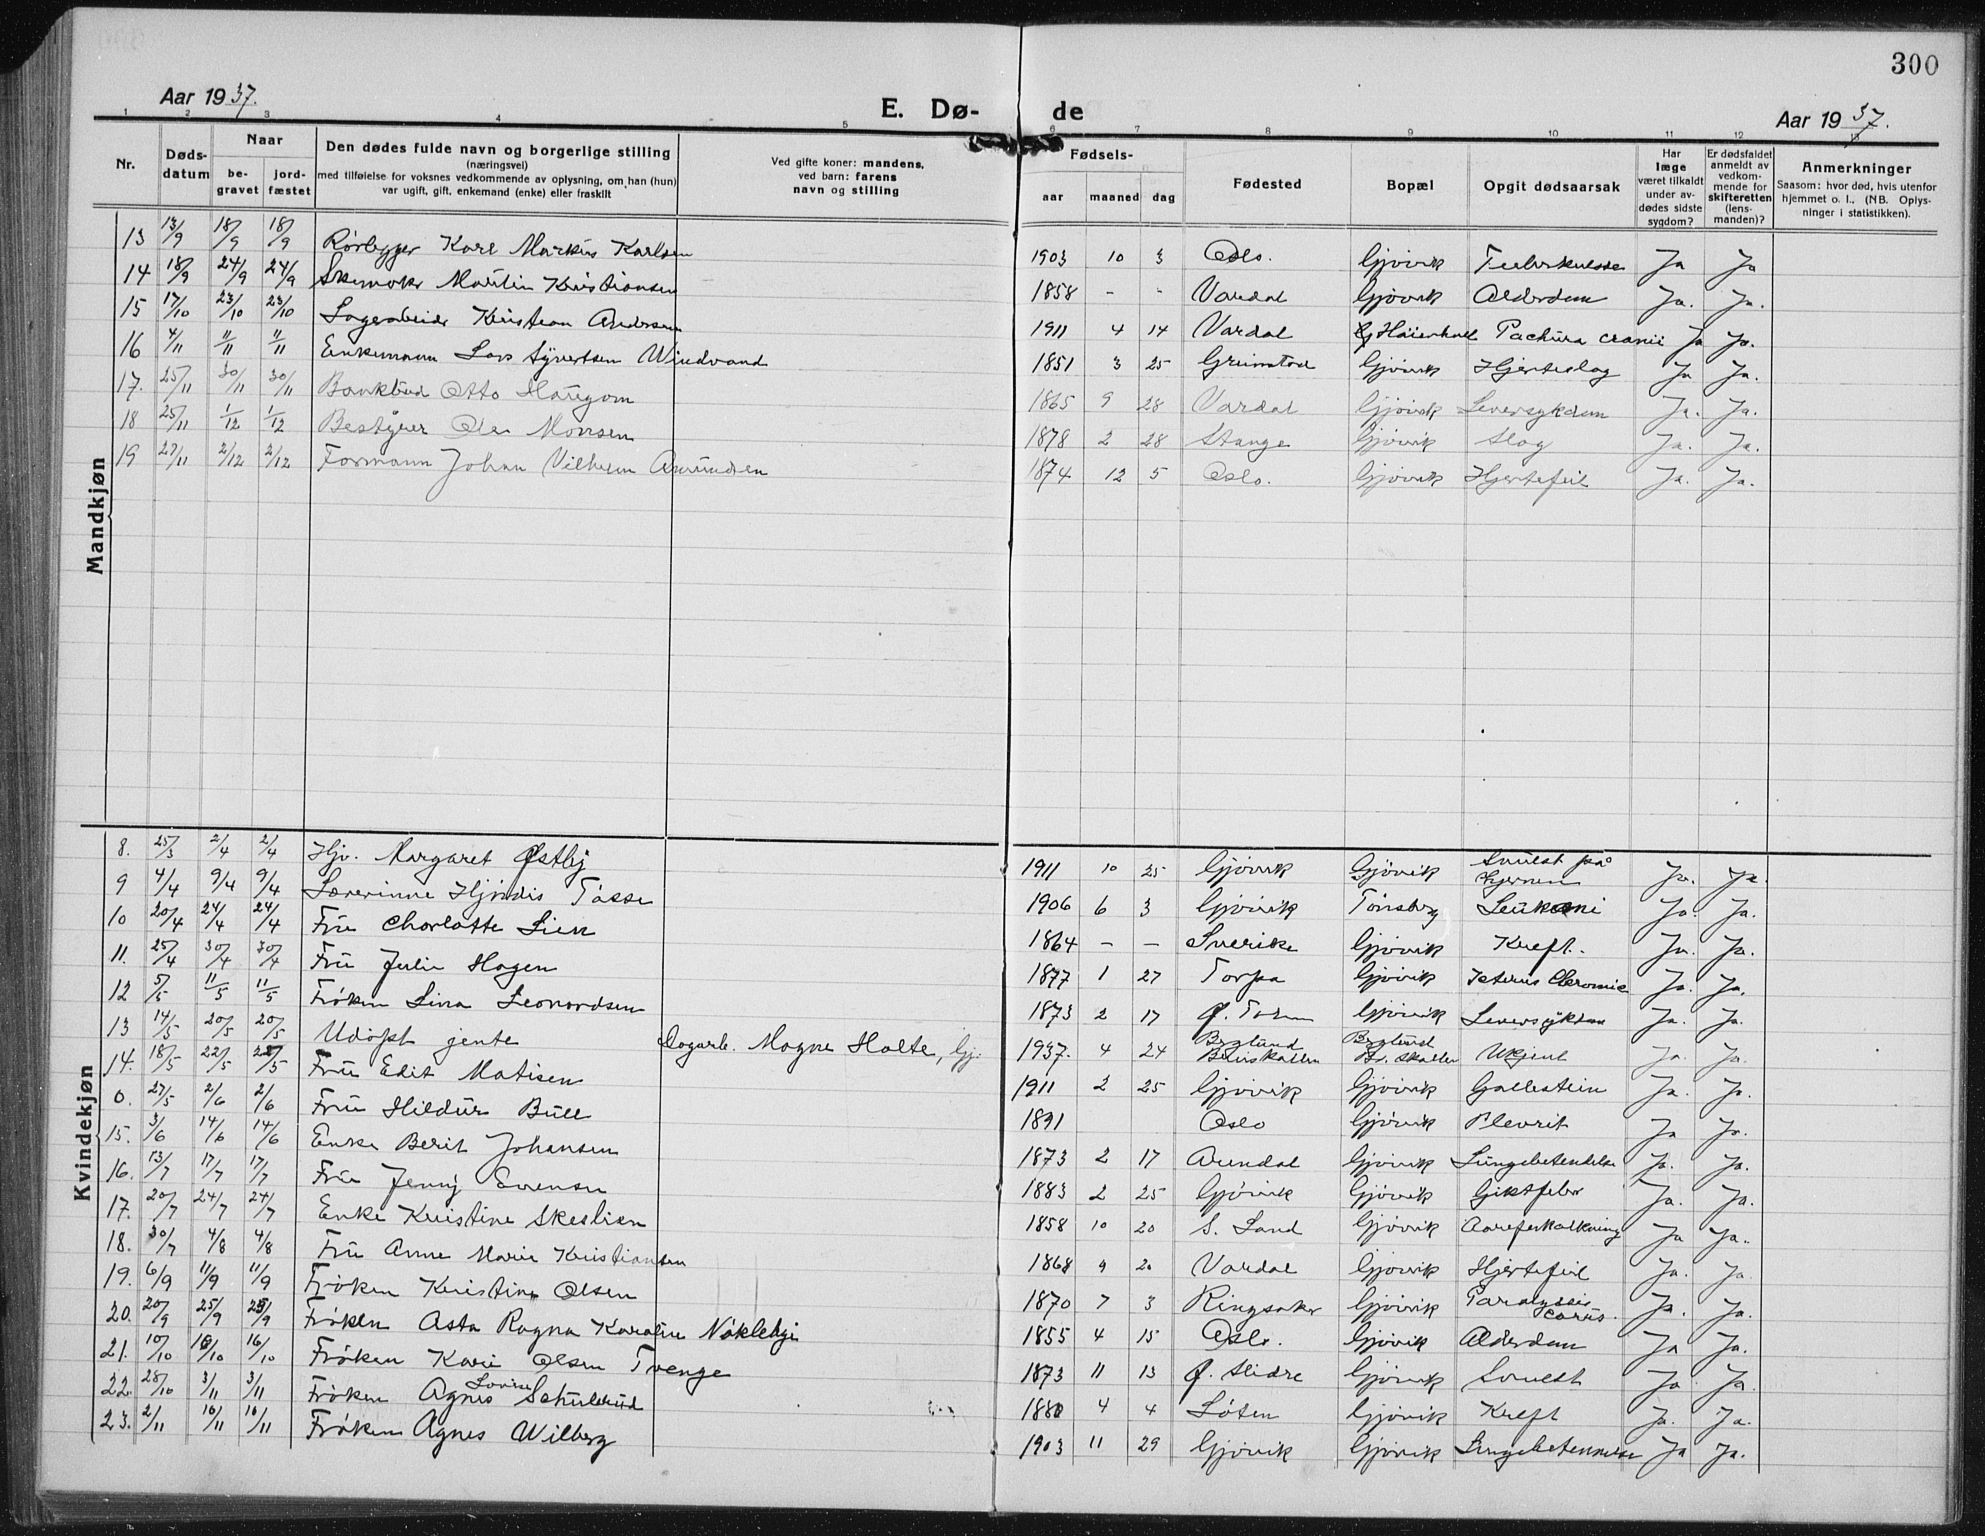 300
Aar 1937.
E. Dø- de
Aar 1937.
1 2 3 4 5 6 7 8 9 10 11 12 13
Nr.
Døds-datum
Naar
be-gravet
jord-fæstet
Den dødes fulde navn og borgerlige stilling
(næringsvei)
med tilføielse for voksnes vedkommende av oplysning, om han (hun)
var ugift, gift, enkemand (enke) eller fraskilt
Ved gifte koner: mandens,
ved barn: farens
navn og stilling
Fødsels-
aar maaned dag
Fødested
Bopæl
Opgit dødsaarsak
Har læge været tilkaldt under av-dødes sidste sygdom?
Er dødsfaldet anmeldt av vedkom-mende for skifteretten (lens-manden)?
Anmerkninger
Saasom: hvor død, hvis utenfor
hjemmet o. l., (NB. Oplys-
ninger i statistikken).
Mandkjøn
13 13/9 18/9 18/9 Rørlegger Karl Markus Karlsen 1903 10 3 Oslo. Gjøvik Tuberkulose Ja Ja
14 18/9 24/9 24/9 Skomaker Martin Kristiansen 1858 - - Vardal Gjøvik Alderdom Ja. Ja.
15 17/10 23/10 23/10 Lagerarbeider Kristian Andersen 1911 4 14 Vardal Cranii Ja Ja.
16 4/11 11/11 11/11 Enkemann Lars Syvertsen Windvand 1851 3 25 Grimstad Gjøvik Hjerteslag Ja Ja.
17. 25/11 30/11 30/11 Bankbud Otto Haugom 1865 9 28 Vardal Gjøvik Leversykdom Ja. Ja.
18 25/11 1/12 1/12 Bestyrer Ole Monsen 1878 2 28 Stange Gjøvik Slag Ja. Ja.
19 27/11 2/12 2/12 Formann Johan Vilhelm Amundsen 1874 12 5 Oslo. Gjøvik Hjertefeil Ja. Ja.
Kvindekjøn
8. 25/3 2/4 2/4 Hjv. Margaret Østby 1911 10 25 Gjøvik Gjøvik Svulst på hjernen Ja. Ja.
9 4/4 9/4 9/4 Lærerinne Hjørdis Tåsse 1906 6 3 Gjøvik Tønsberg Leukemi Ja. Ja.
10 20/4 24/4 24/4 Fru Charlotte Lien 1864 — — Sverike Gjøvik Kreft. Ja. Ja.
11. 25/4 30/4 30/4 Fru Julie Hagen 1877 1 27 Torpa Gjøvik Icterus Chronic Ja. Ja.
12 5/5 11/5 11/5 Frøken Lina Leonardsen 1873 2 17 Ø. Toten Gjøvik Leversykdom Ja. Ja.
13 14/5 20/5 20/5 Udøpt jente Dagarb. Magne Holte, Gj. 1937. 4 24 Berglund Bruiskallen Berglund Br. skallen Ukjent Ja. Ja.
14. 18/5 22/5 22/5 Fru Edit Matisen 1911 2 25 Gjøvik Gjøvik Gallestein Ja. Ja.
0. 27/5 2/6 2/6 Fru Hildur Bull 1891 Oslo Gjøvik Plevrit Ja Ja.
15. 3/6 14/6 14/6 Enke Berit Johansen 1873 2 17 Arendal Gjøvik Lungebetendelse Ja. Ja.
16. 13/7 17/7 17/7 Fru Jenny Evensen 1883 2 25 Gjøvik Gjøvik Giktfeber Ja. Ja.
17. 20/7 24/7 24/7 Enke Kristine Skeslien 1858 10 20 S. Land Gjøvik Aareforkalkning Ja Ja.
18. 30/7 4/8 4/8 Fru Anne Marie Kristiansen 1868 9 20 Vardal Gjøvik Hjertefeil Ja. Ja
19. 6/9 11/9 11/9 Frøken Kristine Olsen 1870 7 3 Ringsaker Gjøvik Paralysis cordis. Ja. Ja.
20. 20/9 25/9 25/9 Frøken Asta Ragna Karoline Nøkleby 1855 4 15 Oslo. Gjøvik Alderdom Ja Ja.
21. 10/10 16/10 16/10 Frøken Kari Olsen Tvenge 1873 11 13 Ø. Slidre Gjøvik Svulst Ja Ja.
22. 28/10 3/11 3/11 Frøken Agnes Lovise Schulerud 1880 4 4 Løten Gjøvik Kreft Ja. Ja.
23. 2/11 10/11 10/11 Frøken Agnes Wilberg 1903 11 29 Gjøvik Gjøvik Lungebetennelse Ja Ja.